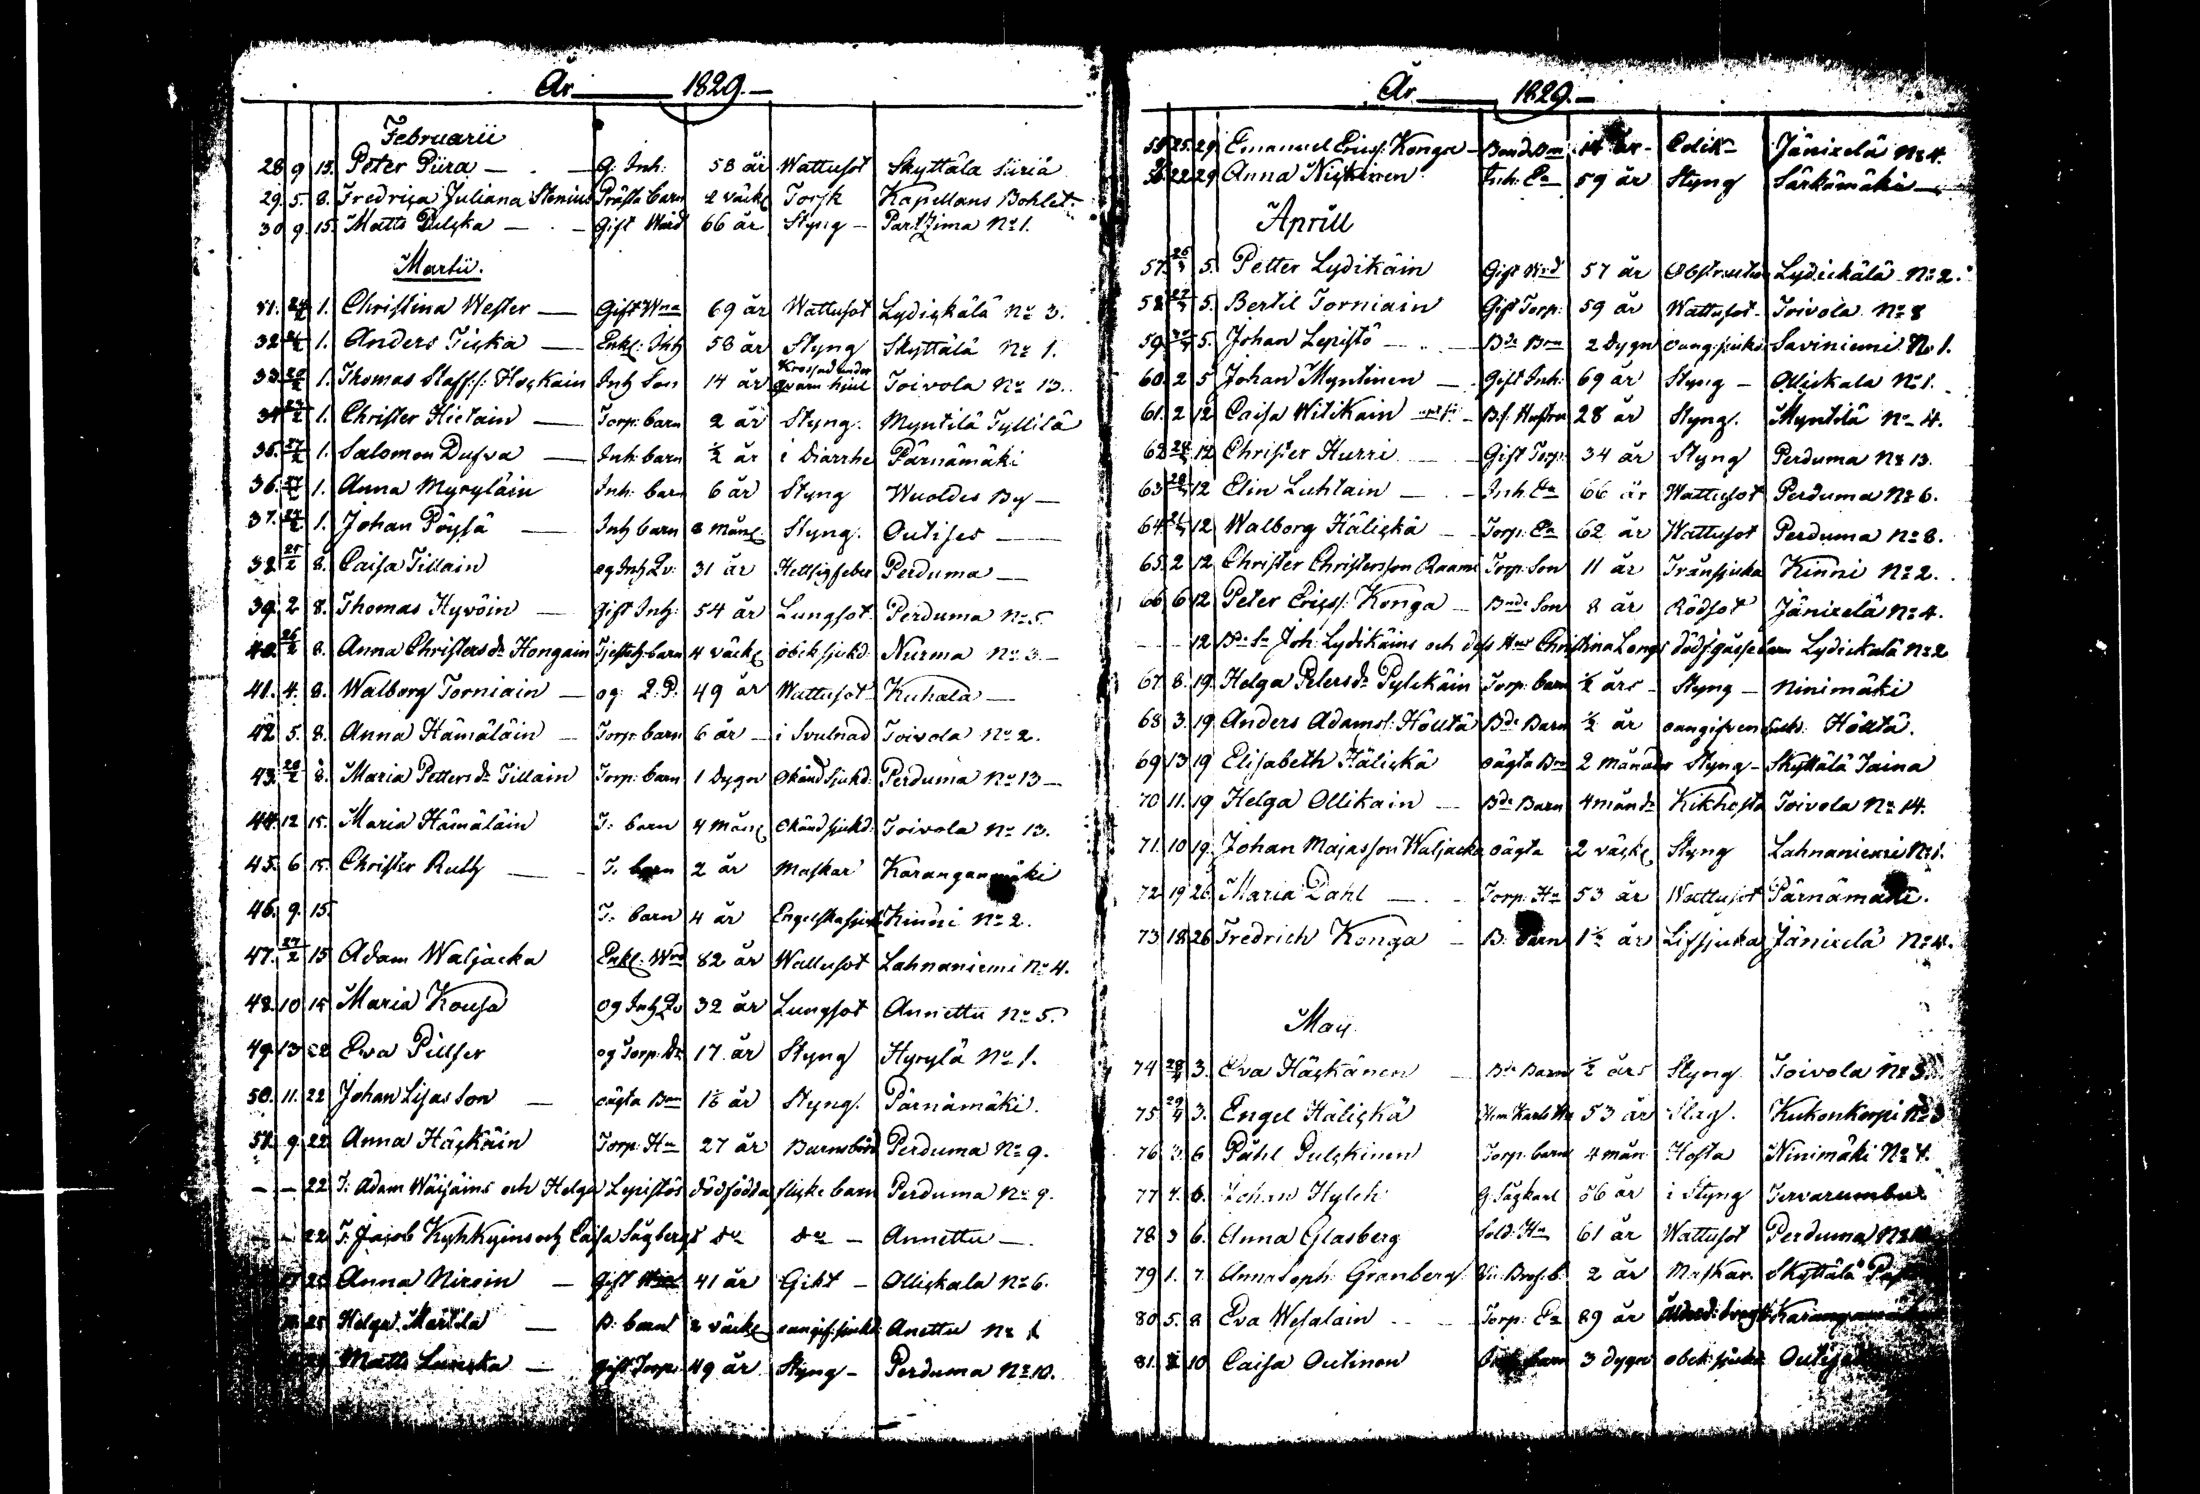 År 1829.
Februarii
28 9 15. Peter Piira — G. Inh: 58 år Wattusot Skyttälä Siiriä
29. 5. 8. Fredrica Juliana Stenius Prästa barn 2 väck Torsk Kapellans Bohlet
30 9. 15. Matts Pulcka — Gift Wärd 66 år Styng - Partzima No 1.
Martii.
31. 24/2 1. Christina Wester — Gift Wna 69 år Wattusot Lydickälä No 3.
32 1. Anders Ticka — Enkl: Inh 58 år Styng Skyttälä No 1.
33. 1. Thomas Staffs: Hockain Inh Son 14 år Krossad under qvarn hiul Toivola No 13.
34 1. Christer Hietain — Torp: barn 2 år Styng. Myntilä Tyllilä
35. 27/2 1. Salomon Dufva — Inh: barn ½ år i Diarrhe Pärnämäki
36. 27/2 1. Anna Myryläin Inh: barn 6 år Styng Wuoldes By —
37. 1. Johan Pöysä — Inh barn 8 mån Styng. Outises —
38 8. Caisa Tillain og Inh Qv: 31 år Hettsigfeber Perduma —
39. 2 8. Thomas Hyvöin — Gift Inh: 54 år Lungsot Perduma No 5.
40. 26/2 8. Anna Christersdr Hongain Tjensteh: barn 4 väck obek sjukd Nurma No 3. —
41. 4. 8. Walborg Torniain — og: Q: P. 49 år Wattusot Kuhala —
42 5. 8. Anna Hämäläin — Torp: barn 6 år — i Svulnad Toivola No 2.
43. 28/2 8. Maria Pettersdr Tillain Torp: barn 1 Dygn okänd sjukd: Perduma No 13 —
44. 12 15. Maria Hämäläin T: barn 4 mån okänd sjukd: Toivola No 13.
45. 6 15. Christer Ruth — T: barn 2 år Maskar Karanganmäki
46. 9. 15. T: barn 4 år Engelska sjuk Kinni No 2.
47. 27/2 15 Adam Waljacka Enkl: Wrd 82 år Wattusot Lahnaniemi No 4.
48. 10 15 Maria Kousa og Inh Qv 32 år Lungsot Annettu No 5.
49. 13 22 Eva Pillser og Torp: Dr 17 år Styng Hyrylä No 1.
50. 11. 22 Johan Lisas Son — oägta Bn 1½ år Styng. Pärnämäki.
51. 9. 22. Anna Häckäin Torp: Ha 27 år Barnsbörd Perduma No 9.
— — 22 T: Adam Wäisäins och Helga Lepistös dödfödda flicke barn Perduma No 9.
— 22 T. Jacob Kyhkyins och Caisa Sagbergs do do — Annettu —
Anna Niroin — Gift 41 år Gikt — Ollickala No 6.
Helga Märtila — B: barn 2 väck oangif: sjukd Anettu No 1
Matts — Gift Torp: 49 år Styng — Perduma No 10.
År 1829. —
55 25. 29 Emanuel Erics: Konga — Bonde Son 14 år — Colik — Jänizelä No 4.
56 22 29 Anna Nickinen Inh: Ea 59 år Styng Särkämäki —
Aprill
57. 5. Petter Lydikäin Gift Wrd 57 år Obstruction Lydickälä No 2.
58 5. Bertil Torniain Gift Torp: 59 år Wattusot — Toivola No 8
59. 5. Johan Lepistö — Bde Bn 2 Dygn oang: sjukd Saviniemi No 1.
60. 2 5 Johan Myntinen — Gift Inh: 69 år Styng — Ollickala No 1.
61. 2 12 Caisa Witikain — B: Hustru 28 år Styng. Myntilä No 4.
62 12 Christer Hurri — Gift Torp: 34 år Styng Perduma No 13.
63 12 Elin Luhtain — Inh. Ea 66 år Wattusot Perduma No 6.
64 12 Walborg Hälickä — Torp: Ea 62 år Wattusot Perduma No 8.
65. 2 12 Christer Christersson Raami Torp: Son 11 år Trånsjuka Kinni No 2.
66 6 12 Peter Erics: Konga — Bnde Son 8 år Rödsot Jänizelä No 4.
— 12 Bde Sn Joh: Lydikäins och dess Hus Christina Longs dödf: gosse barn Lydickälä No 2
67. 8. 19. Helga Petersdr Pylckäin Torp: barn ½ års — Styng — Ninimäki
68 3. 19. Anders Adams: Höltä Bde Barn ½ år oangifven sukd: Höltä.
69 13 19 Elisabeth Hälickä oägta Bn 2 månader Styng — Skyttälä Taina
70 11. 19 Helga Ollikain — Bde Barn 4 måndr Kikhosta Toivola No 14.
71. 10 19. Johan Majasson Waljacka oägta 2 väck Styng Lahnaniemi No 1.
72 19 26. Maria Dahl — Torp: Ha 53 år Wattusot Pärnämäki.
73 18 26 Fredrich Konga — B: Barn 1½ år Lifsjuka Jänizelä No 4.
Maij
74 28/4 3. Eva Häckänen — Bde Barn ½ års Styng. Toivola No 3.
75 29/4 3. Engel Hälickä 53 år Slag. Kukonkorpi No 3
76 3. 6 Påhl Pulckinen Torp: barn 4 mån Hosta Ninimäki No 4.
77 4. 6. Johan Hylck G. Sågkarl 56 år i Styng
78 3 6. Anna Glasberg Sold: Ha 61 år Wattusot Perduma
79 1. 7. Anna Soph: Granberg 2 år Maskar. Skyttälä
80 5. 8 Eva Wesalain — Torp: Ea 89 år
81. 10 Caisa Outinen barn 3 dygn obek: sjukd